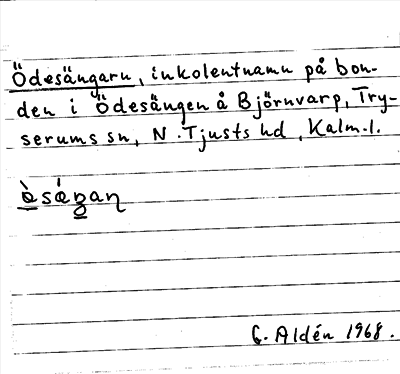 Ödesängarn, inkolentnamn på bon-
den i Ödesängen å Björnvarp, Try-
serums sn, N. Tjusts hd, Kalm. l.
G. Aldén 1968.